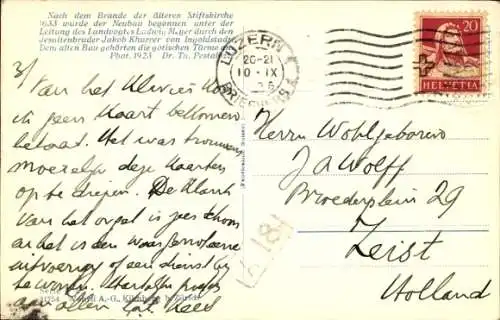 Nach dem Brande der älteren Stiftskirche
1633 wurde der Neubau begonnen unter der
Leitung des Landvogtes Ludwig Meyer durch den
Jesuitenbruder Jakob Khurrer von Ingolstadt.
Dem alten Bau gehörten die gotischen Türme an.
Phot. 1923 Dr. Th. Pestal
LUZERN 1
20-21
10·IX
BRIEFVERS.
20
HELVETIA
3/ Van het
geen Kaart bekomen
betaald. Het was trouwens
moeielijk deze Kaarten
op te diepen. De Klank
van het orgel is zeer schoon
en het is een waar genot
uitvoering of een dienst bij
te wonen. Hartelijke groeten
aan allen
Herrn Wohlgeboren
JA Wolff
Broederplein 29
Zeist
Holland
181
11254
A.-G., Kilchberg b. Zürich